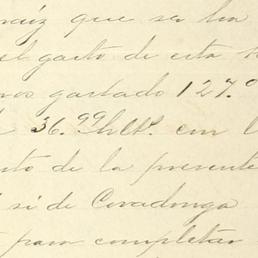 maíz que se ha
el gasto de esta
mos gastado 127.0
36.99 hlts. con l
nto de la presente
si de Covadonga
para completar